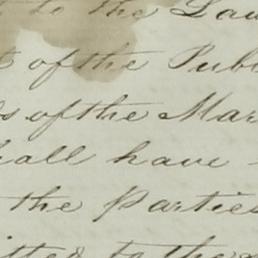 to the Law
of the Publ
s of the Mar
hall have
the Parties
itted to the